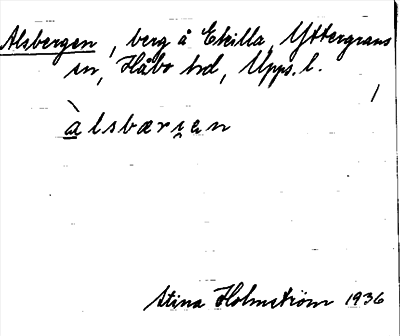 Alsbergen, berg å Ekilla, Yttergrans
sn, Håbo hd, Upps. l.
àlsbærɪ̯an
Stina Holmström 1936